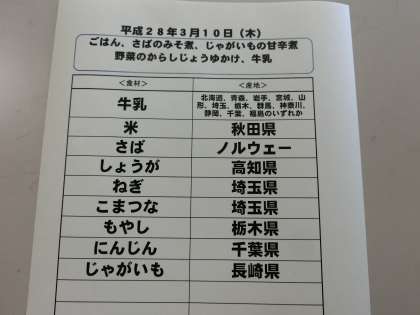 平成28年3月10日（木）
ごはん、さばのみそ煮、じゃがいもの甘辛煮
野菜のからしじょうゆかけ、牛乳
＜食材＞ ＜産地＞
牛乳 北海道、青森、岩手、宮城、山
形、埼玉、栃木、群馬、神奈川、
静岡、千葉、福島のいずれか
米 秋田県
さば ノルウェー
しょうが 高知県
ねぎ 埼玉県
こまつな 埼玉県
もやし 栃木県
にんじん 千葉県
じゃがいも 長崎県